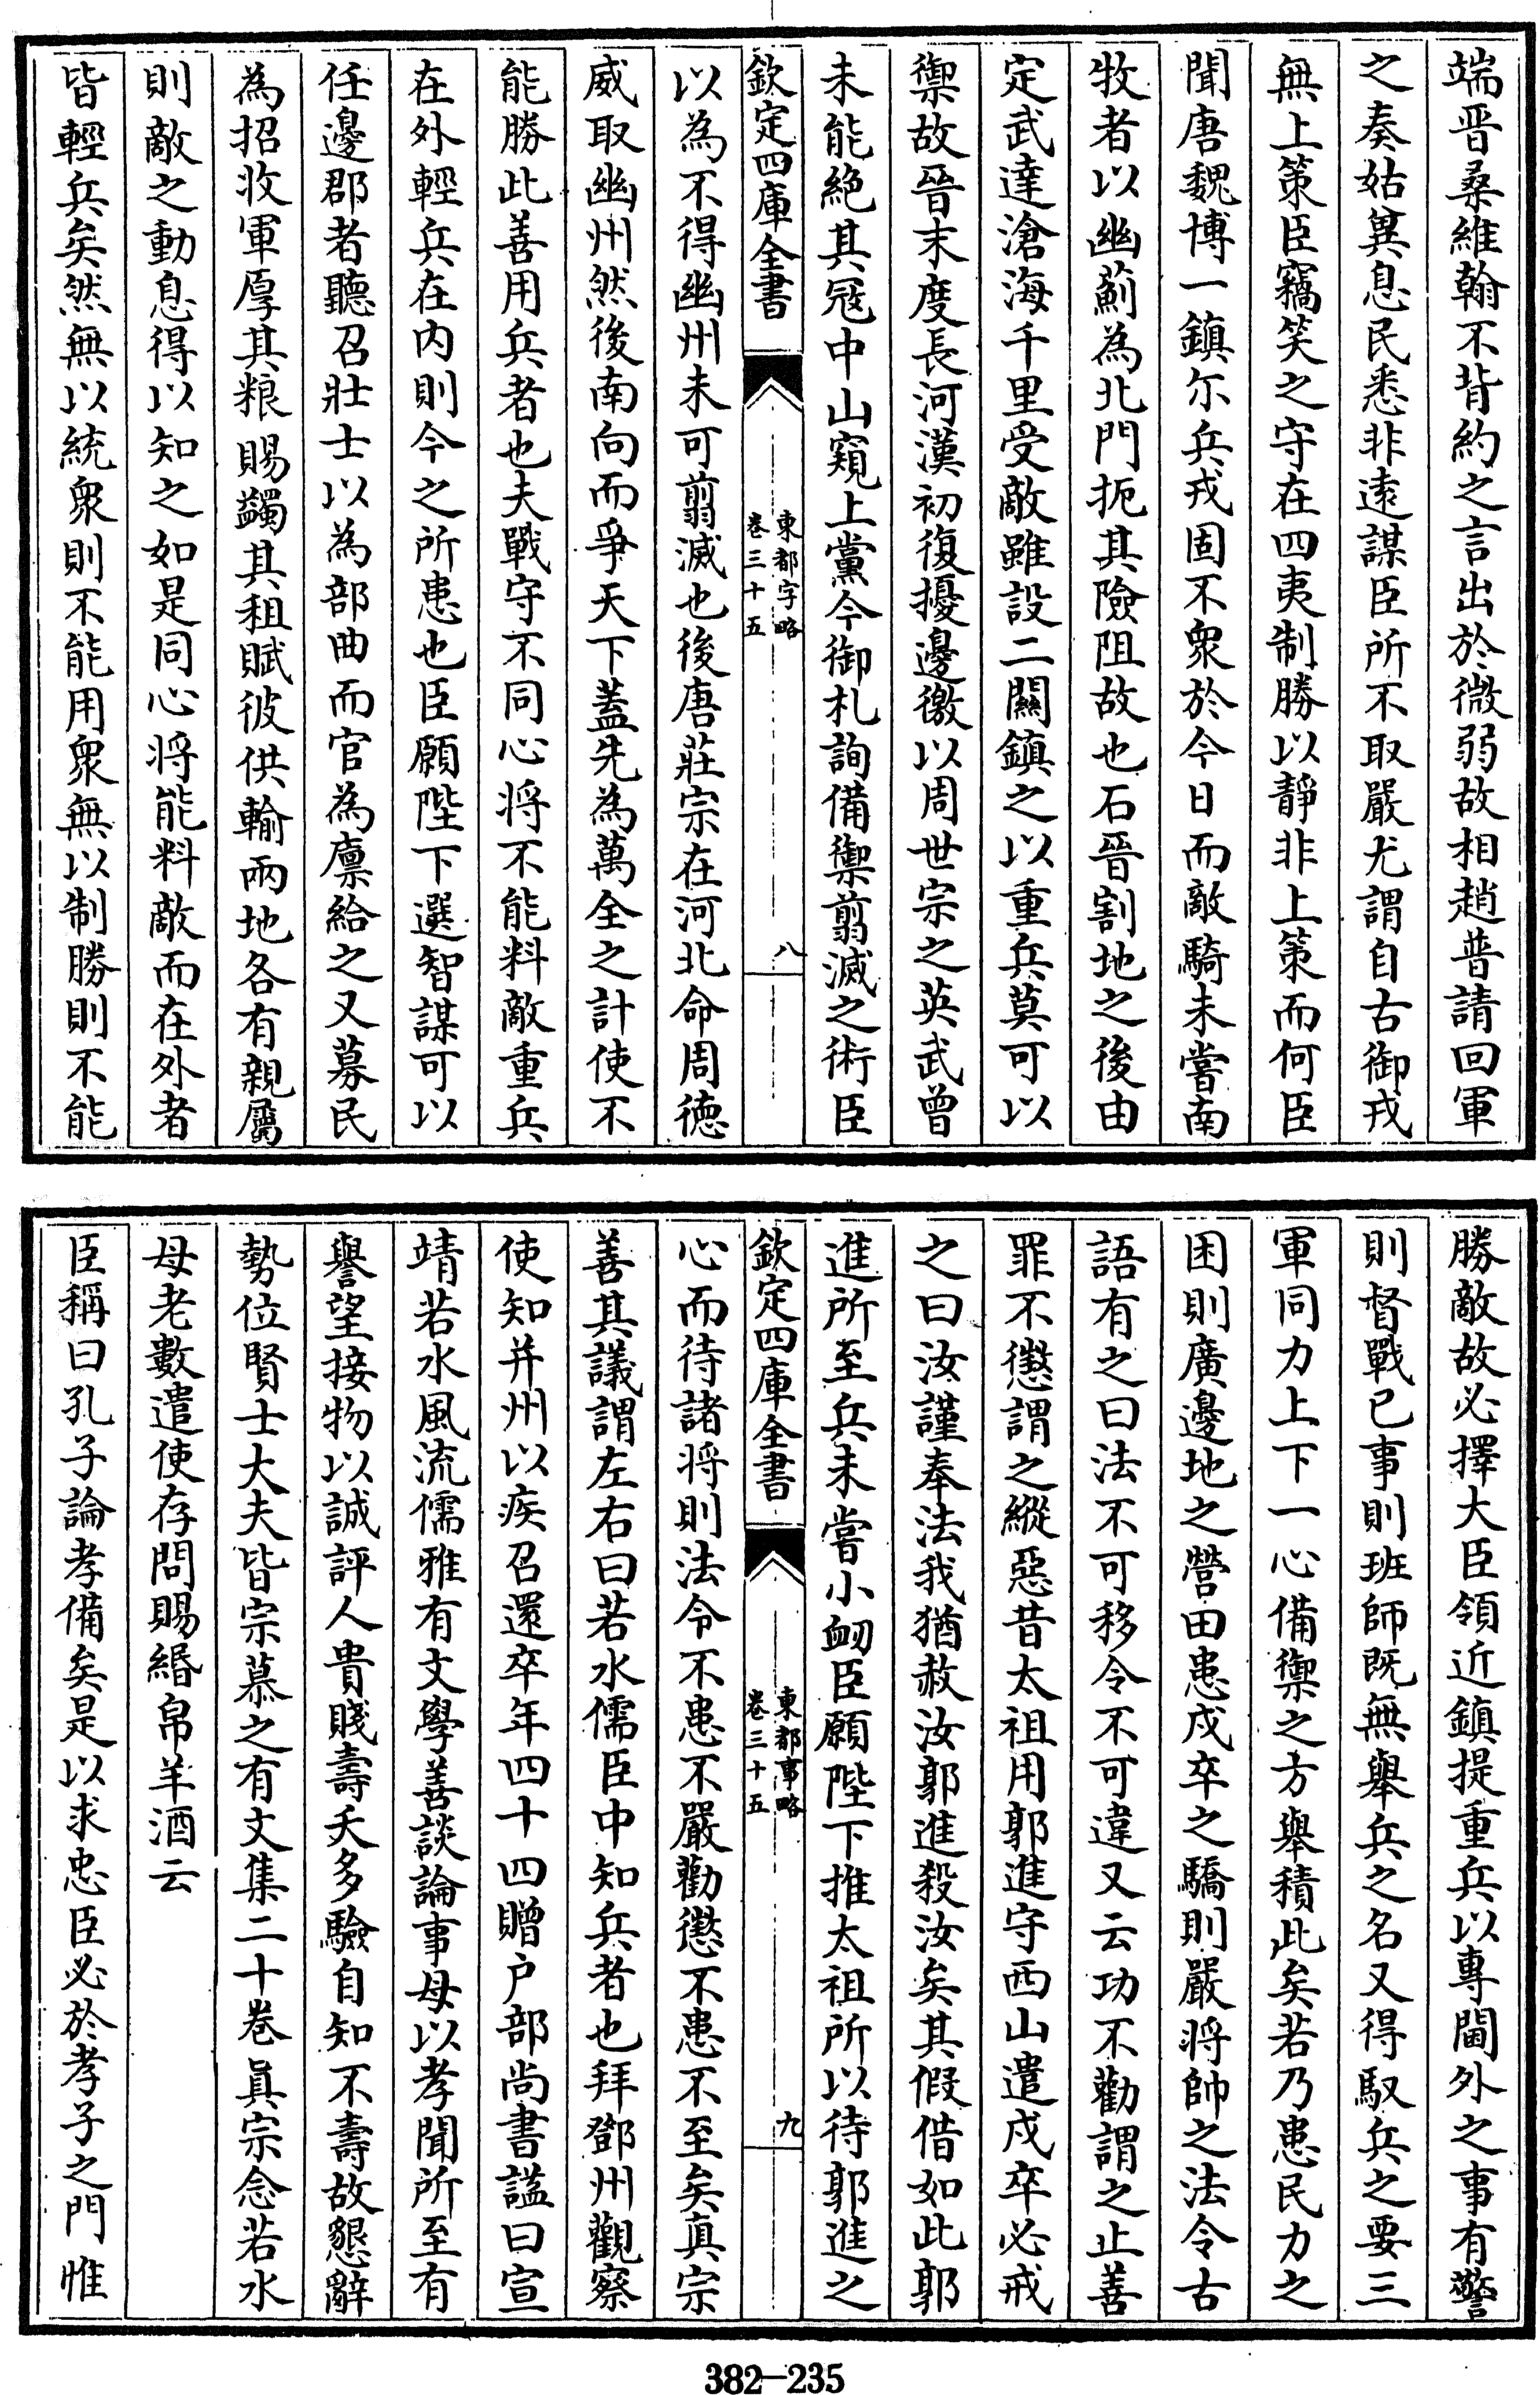 端晋桑維翰不背約之言出於微弱故相趙普請回軍
之奏姑冀息民悉非逺謀臣所不取嚴尤謂自古御戎
無上策臣竊笑之守在四夷制勝以靜非上策而何臣
聞唐魏博一鎮尓兵戎固不衆於今日而敵騎未嘗南
牧者以幽薊為北門扼其險阻故也石晉割地之後由
定武達滄海千里受敵雖設二關鎮之以重兵莫可以
禦故晉末度長河漢初復擾邊徼以周世宗之英武曾
未能絶其冦中山窺上黨今御札詢備禦翦滅之術臣
欽定四庫全書
東都字略
卷三十五
八
以為不得幽州未可翦滅也後唐莊宗在河北命周德
威取幽州然後南向而爭天下蓋先為萬全之計使不
能勝此善用兵者也夫戰守不同心将不能料敵重兵
在外輕兵在内則今之所患也臣願陛下選智謀可以
任邊郡者聽召壯士以為部曲而官為廪給之又募民
為招收軍厚其粮賜蠲其租賦彼供輸兩地各有親屬
則敵之動息得以知之如是同心将能料敵而在外者
皆輕兵矣然無以統衆則不能用衆無以制勝則不能
勝敵故必擇大臣領近鎮提重兵以專閫外之事有警
則督戰已事則班師既無舉兵之名又得馭兵之要三
軍同力上下一心備禦之方舉積此矣若乃患民力之
困則廣邊地之營田患戍卒之驕則嚴将帥之法令古
語有之曰法不可移令不可違又云功不勸謂之止善
罪不懲謂之縱惡昔太祖用郭進守西山遣戍卒必戒
之曰汝謹奉法我猶赦汝郭進殺汝矣其假借如此郭
進所至兵未嘗小衂臣願陛下推太祖所以待郭進之
欽定四庫全書
東都事略
卷三十五
九
心而待諸将則法令不患不嚴勸懲不患不至矣真宗
善其議謂左右曰若水儒臣中知兵者也拜鄧州觀察
使知并州以疾召還卒年四十四贈户部尚書諡曰宣
靖若水風流儒雅有文學善談論事母以孝聞所至有
譽望接物以誠評人貴賤壽夭多驗自知不壽故懇辭
勢位賢士大夫皆宗慕之有文集二十巻真宗念若水
母老數遣使存問賜緡帛羊酒云
臣稱曰孔子論孝備矣是以求忠臣必於孝子之門惟
382—235